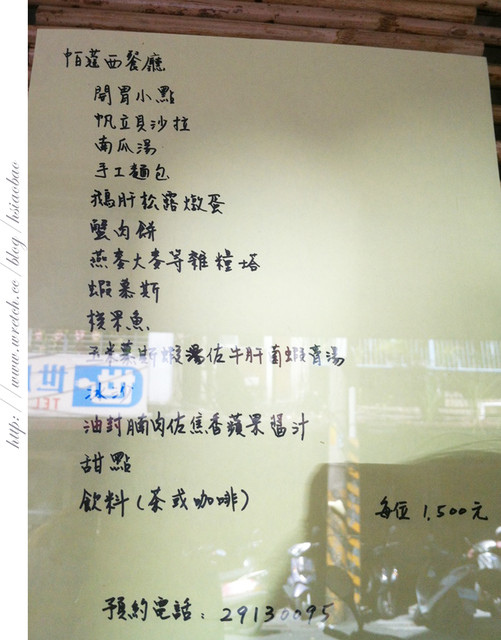 帕蓮西餐廳
開胃小點
帆立貝沙拉
南瓜湯
手工麵包
鵝肝松露燉蛋
蟹肉餅
燕麥大麥等雜糧塔
蝦慕斯
核果魚
玉米慕斯蝦湯佐牛肝菌蝦膏湯
冰沙
油封腩肉佐焦香蘋果醬汁
甜點
飲料(茶或咖啡)
每位 1,500元
預約電話：29130095
http://www.wretch.cc/blog/hsiaobao